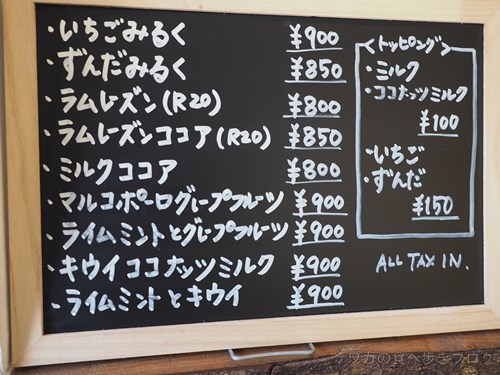 ・いちごみるく ¥900
・ずんだみるく ¥850
・ラムレーズン(R20) ¥800
・ラムレーズンココア(R20) ¥850
・ミルクココア ¥800
・マルコポーログレープフルーツ ¥900
・ライムミントとグレープフルーツ ¥900
・キウイココナッツミルク ¥900
・ライムミントとキウイ ¥900
<トッピング>
・ミルク
・ココナッツミルク
¥100
・いちご
・ずんだ
¥150
ALL TAX IN.
ワカの食べ歩きブログ